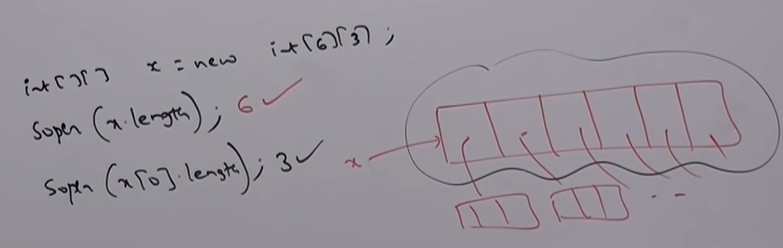 int[][] x = new int[6][3];
Sopln (x.length); 6 ✓
Sopln (x[0].length); 3 ✓
x